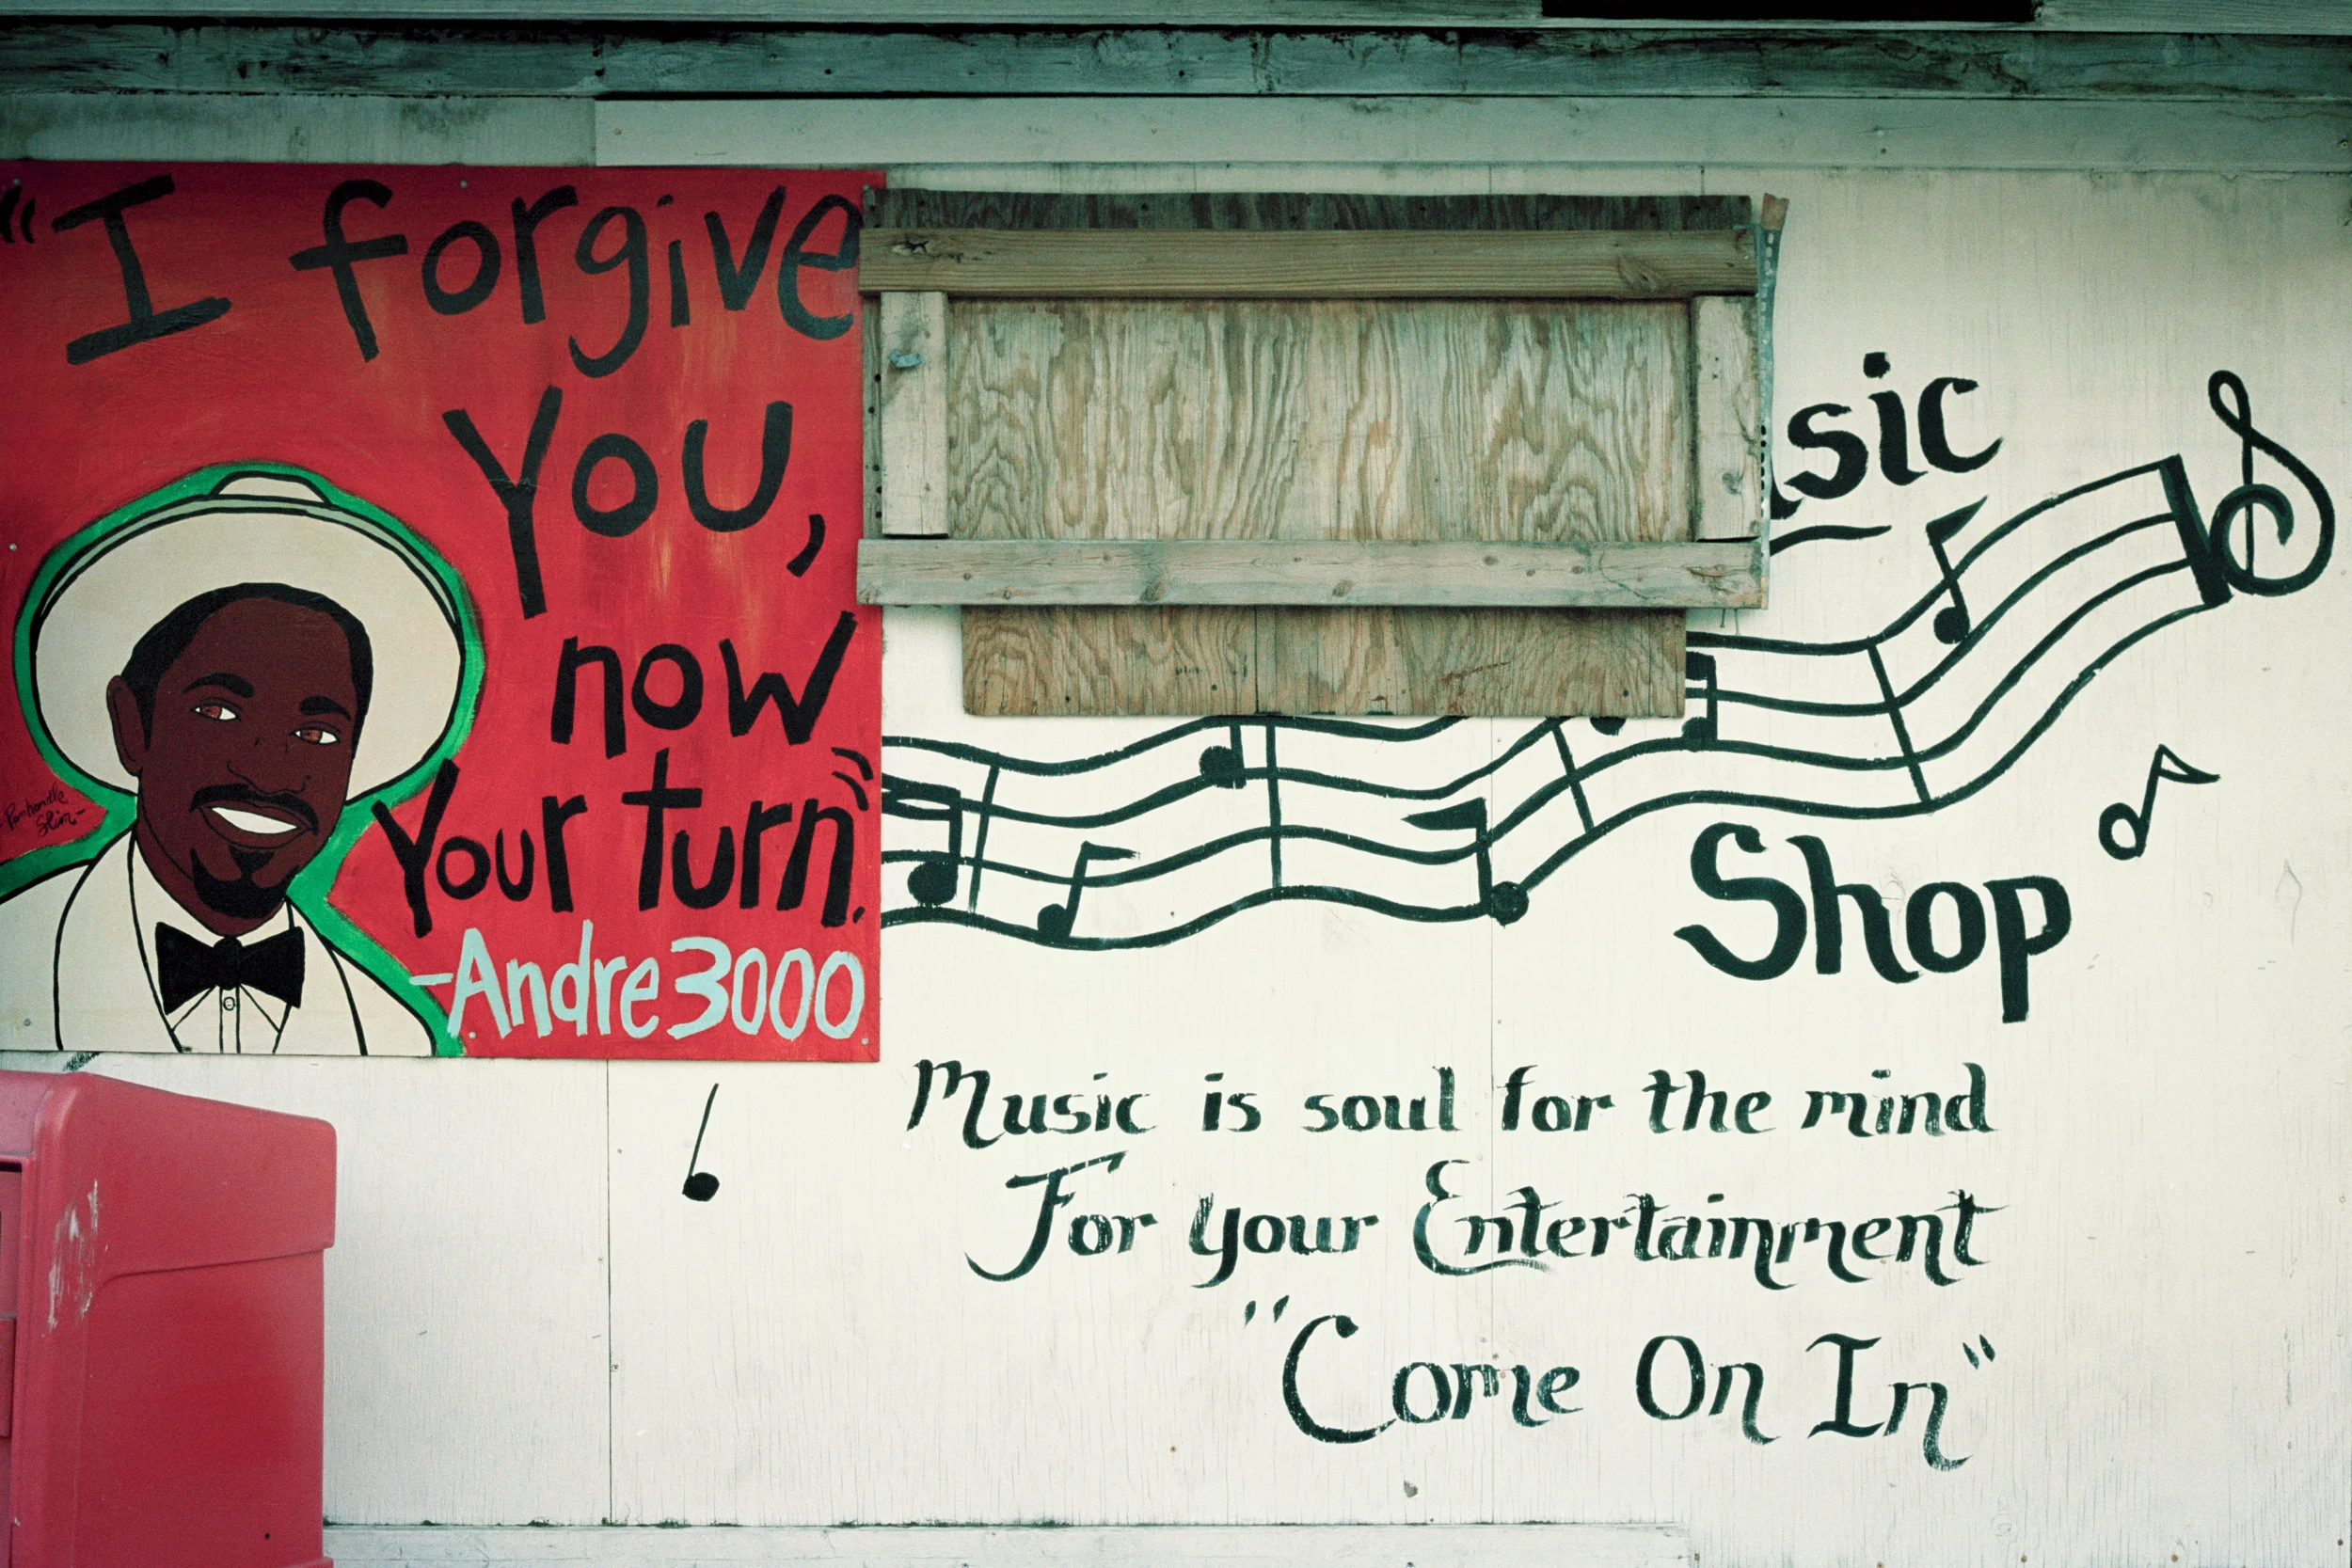 "I forgive
You,
now
Your turn".
-Andre3000
Panhandle
Slim-
sic
Shop
Music is soul for the mind
For your Entertainment
"Come On In"